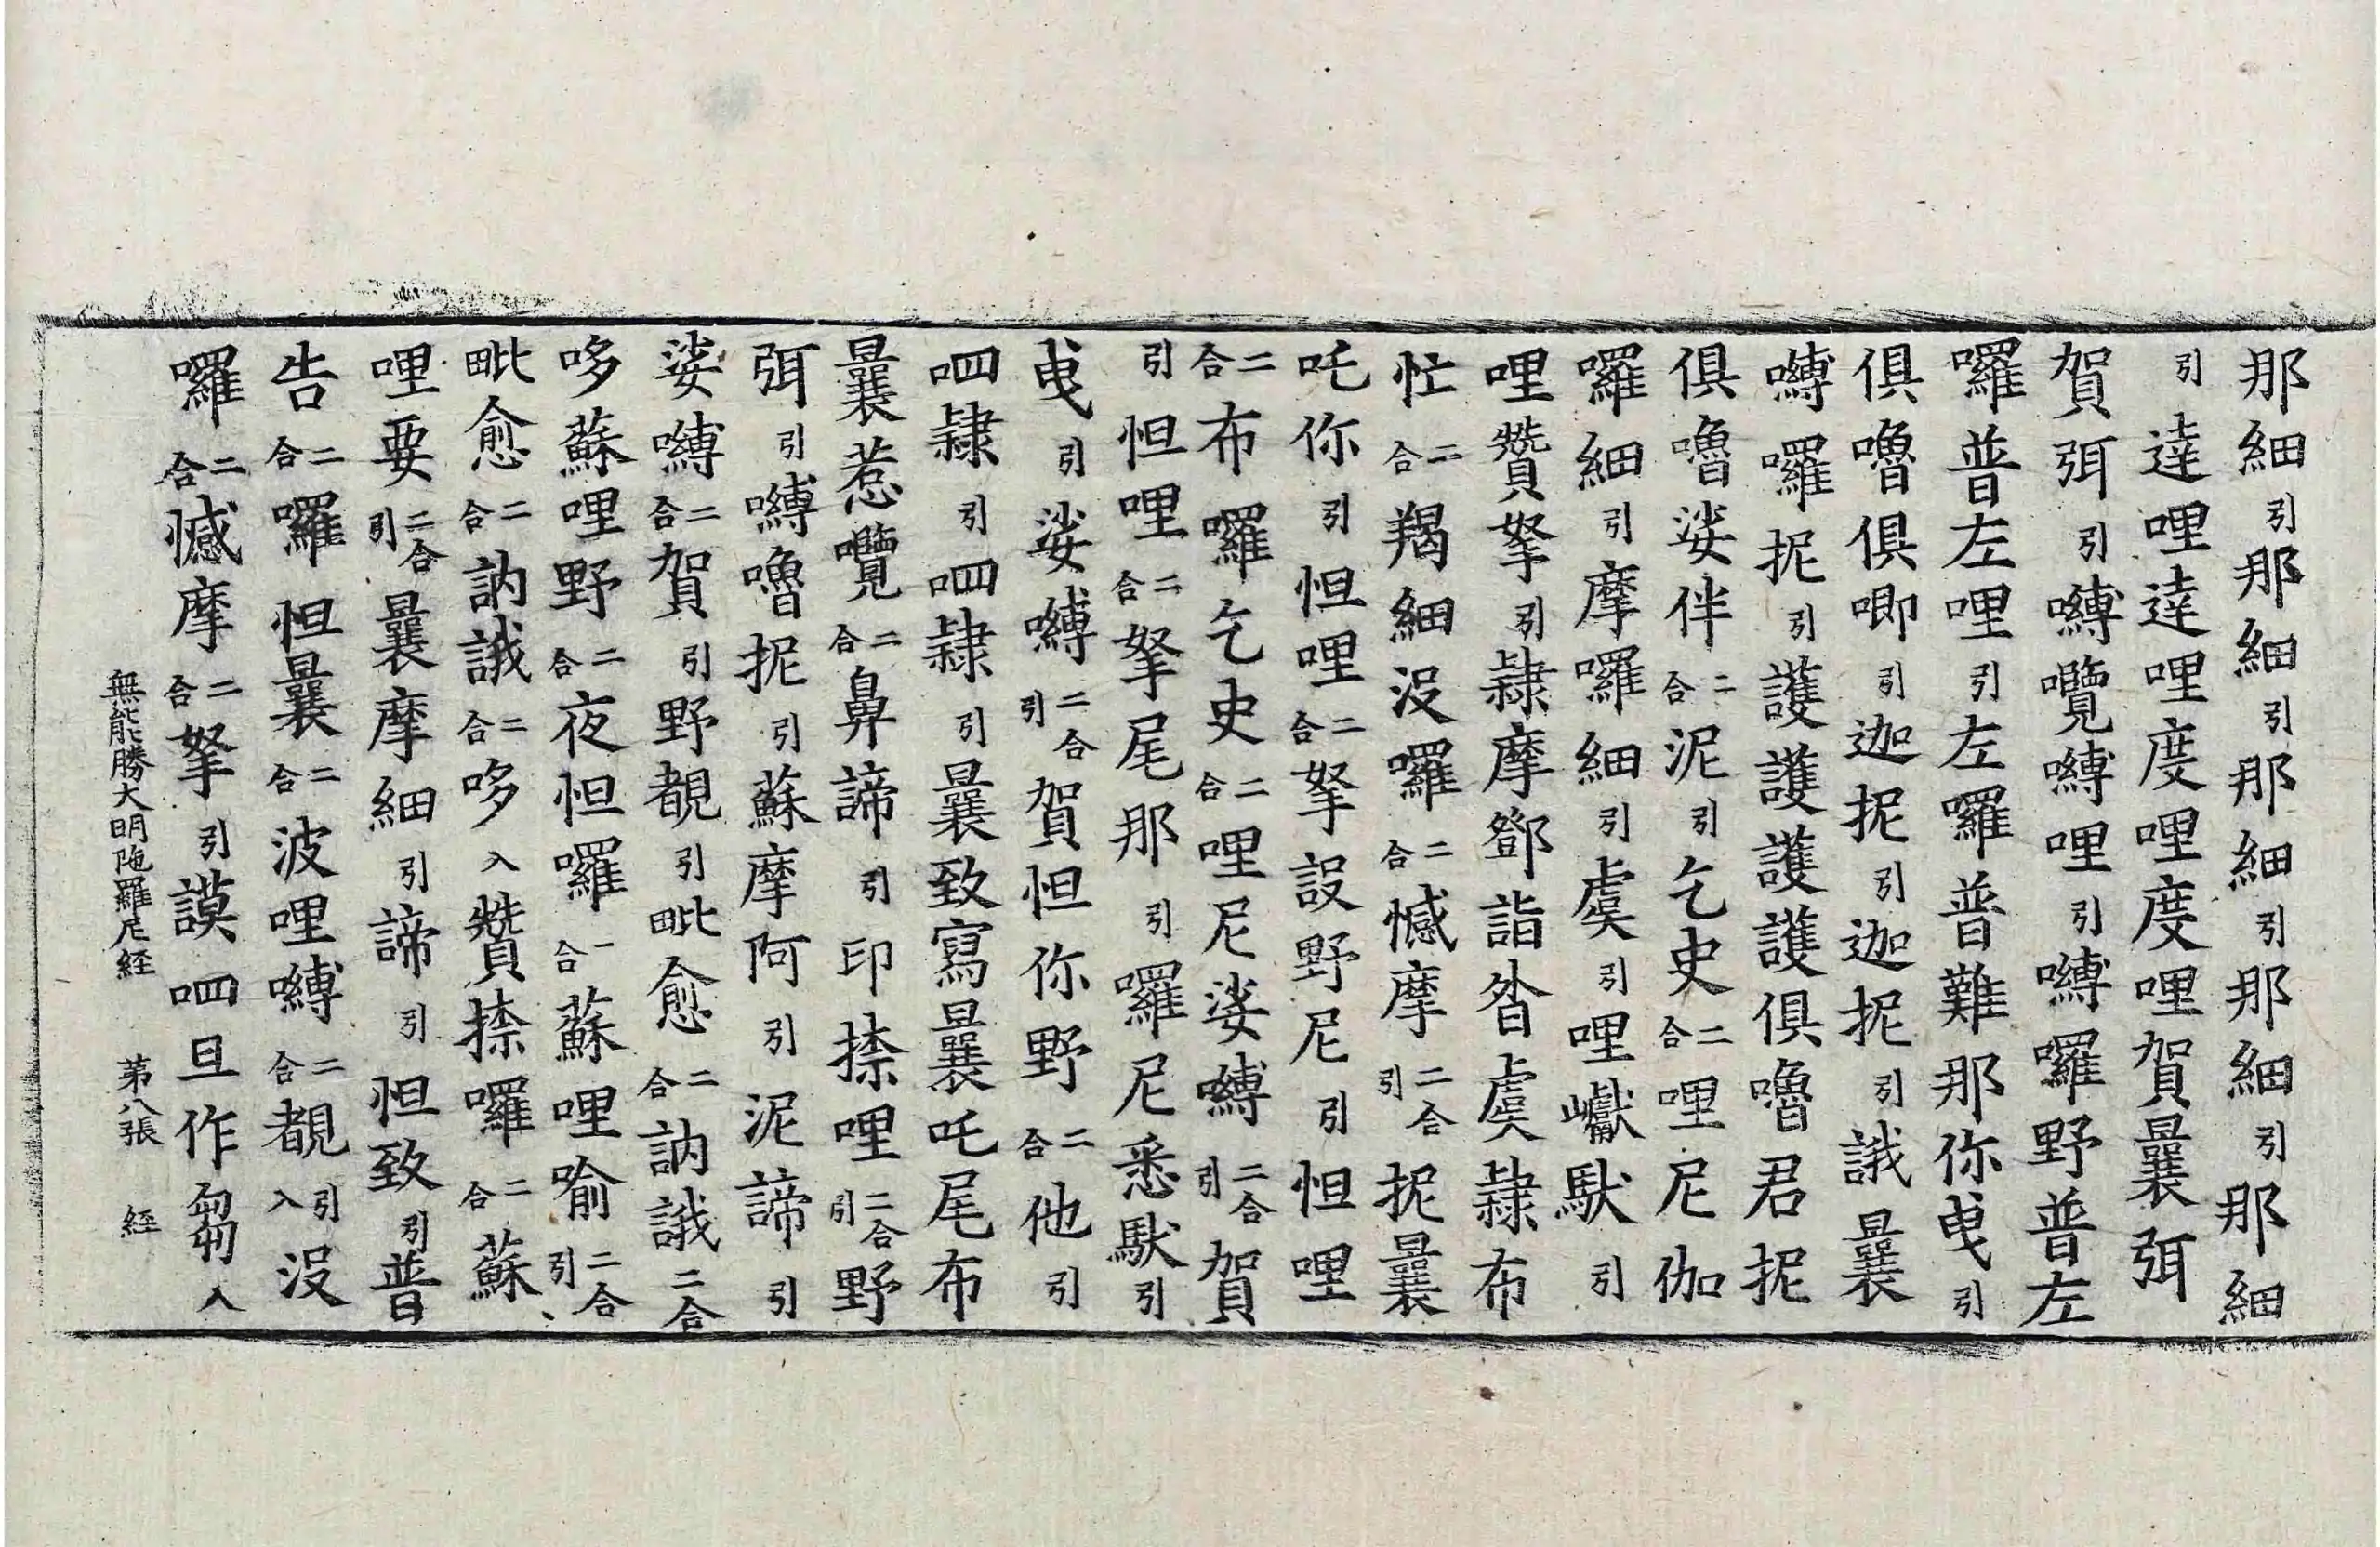 那細引那細引那細引那細引那細
引達哩達哩度哩度哩賀曩弭
賀弭引嚩覽嚩哩引嚩囉野普左
囉普左哩引左囉普難那你曳引
俱嚕俱唧引迦抳引迦抳引誐曩
嚩囉抳引護護護護俱嚕君抳
俱嚕娑伴二合泥引乞史二合哩尼伽
囉細引摩囉細引虞引哩巘馱引
哩贊拏引隸摩鄧詣沓虞隸布
忙二合羯細没囉二合憾摩二合引抳曩
吒你引怛哩二合拏設野尼引怛哩
二合布囉乞史二合哩尼娑嚩二合引賀
引怛哩二合拏尾那引囉尼悉馱引
曳引娑嚩二合引賀怛你野二合他引
呬隸引呬隸引曩致寫曩吒尾布
曩惹囕二合鼻諦引印捺哩二合引野
弭引嚩嚕抳引蘇摩阿引泥諦引
娑嚩二合賀引野覩引毗愈二合訥誐二合
哆蘇哩野二合夜怛囉一合蘇哩喻二合引
毗愈二合訥誐二合哆入贊捺囉二合蘇
哩要二合引曩摩細引諦引怛致引普
告二合囉怛曩二合波哩嚩二合覩引入没
囉二合憾摩二合拏引謨呬旦作芻入
無能勝大明陁羅尼經 第八張 經